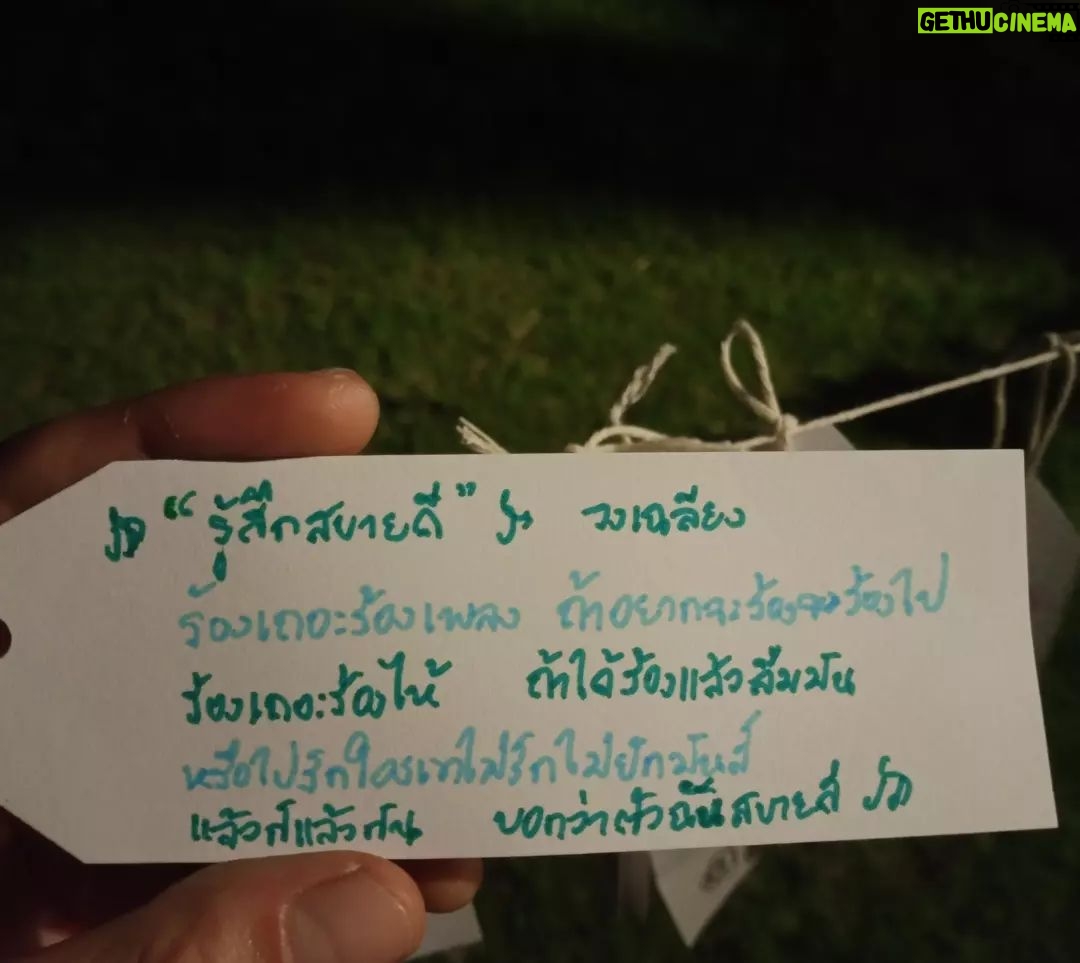 GETHUCINEMA
"รู้สึกสบายดี" วงเฉลียง
ร้องเถอะร้องเพลง ถ้าอยากจะร้องจงร้องไป
ร้องเถอะร้องไห้ ถ้าได้ร้องแล้วลืมมัน
หรือไปรักใครเขาไม่รักไม่ยักมันส์
แล้วก็แล้วกัน บอกว่าตัวฉันสบายดี